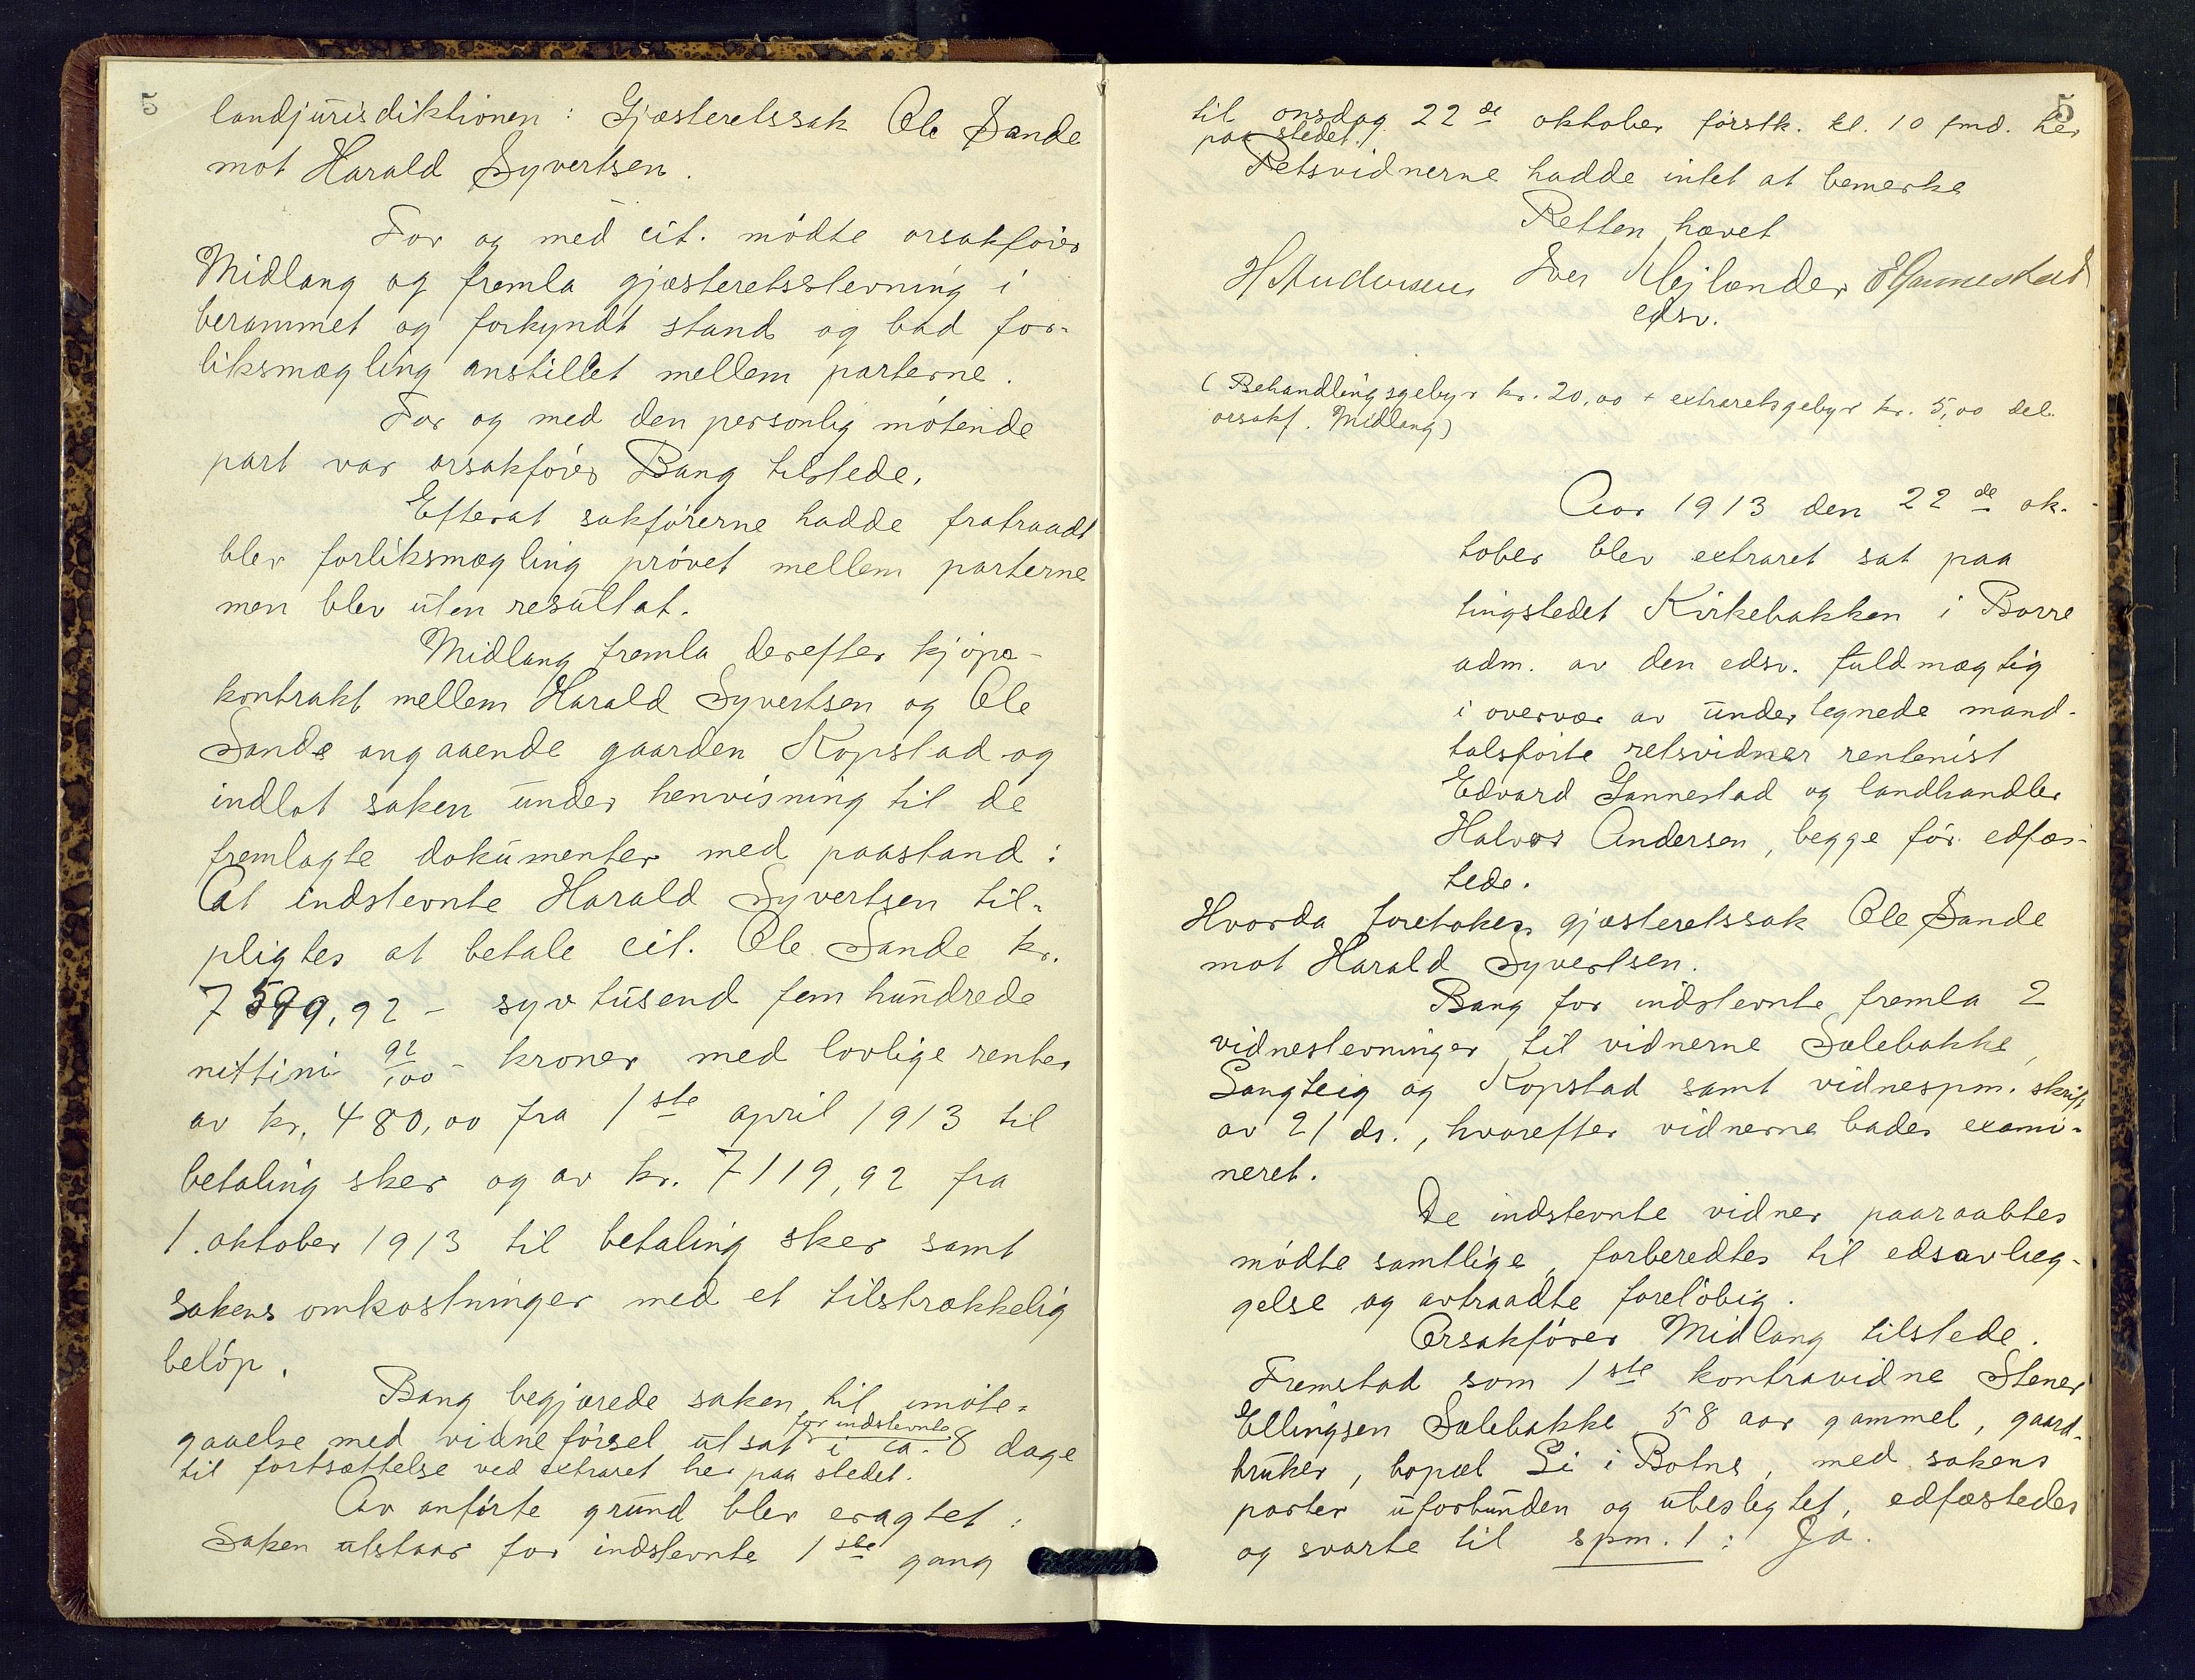 landjurisdiktionen: Gjæsteretssak Ole Sande
mot Harald Syvertsen.
For og med cit. mødte orsakfører
Midlang og fremla gjæsteretsstevning i
berammet og forkyndt stand og bad for-
liksmægling anstillet mellem parterne.
For og med den personlig møtende
part var orsakfører Bang tilstede.
Efterat sakførerne hadde fratraadt
blev forliksmægling prøvet mellem parterne
men blev uten resultat.
Midlang fremla derefter kjøpe-
kontrakt mellem Harald Syvertsen og Ole
Sande angaaende gaarden Kopstad og
indlot saken under henvisning til de
fremlagte dokumenter med paastand:
At indstevnte Harald Syvertsen til-
pligtes at betale cit. Ole Sande kr.
7599,92 - syv tusend fem hundrede
nittini 92/100 - kroner med lovlige renter
av kr. 480,00 fra 1ste april 1913 til
betaling sker og av kr. 7119,92 fra
1. oktober 1913 til betaling sker samt
sakens omkostninger med et tilstrækkelig
beløp.
Bang begjærede saken til imøte-
for indstevnte
gaaelse med vidneførsel utsat i ca. 8 dage
til fortsættelse ved extraret her paa stedet.
Av anførte grund blev eragtet:
Saken utstaar for indstevnte 1ste gang
5
til onsdag 22de oktober førstk. kl. 10 fmd. her
paa stedet.
Retsvidnerne hadde intet at bemerke
Retten hævet
H Andersen Iver Mejlænder E Gannestad
edsv.
(Behandlingsgebyr kr. 20,00 + extraretsgebyr kr. 5,00 del.
orsakf. Midlang)
Aar 1913 den 22de ok-
tober blev extraret sat paa
tingstedet Kirkebakken i Borre
adm. av den edsv. fuldmægtig
i overvær av undertegnede mand-
talsførte retsvidner rentenist
Edvard Gannestad og landhandler
Halvor Andersen, begge før edfæs-
tede.
Hvorda foretokes gjæsteretssak Ole Sande
mot Harald Syvertsen.
Bang for indstevnte fremla 2
vidnestevninger til vidnerne Sølebakke,
Langteig og Kopstad samt vidnespm. skrift
av 21 ds., hvorefter vidnerne bades exami-
neret.
De indstevnte vidner paaraabtes
mødte samtlige, forberedtes til edsavlæg-
gelse og avtraadte foreløbig.
Orsakfører Midlang tilstede.
Fremstod som 1ste kontravidne Stener
Ellingsen Sølebakke 58 aar gammel, gaard-
bruker, bopæl Li i Botne, med sakens
parter uforbunden og ubeslegtet, edfæstedes
og svarte til spm. 1: Ja.